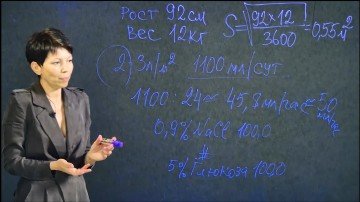 Рост 92см
Вес 12кг
S = √92×12/3600 = 0,55м²
2, 3л/м² 1100 мл/сут
1100 : 24 = 45,8 мл/час ≈ 50 мл/час
0,9% NaCl 100,0
#
5% Глюкоза 100,0